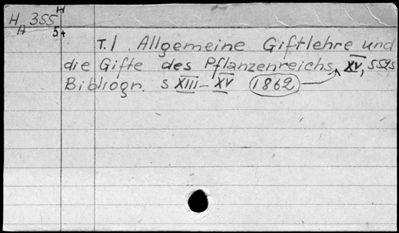 H 355 H
H 54
T.1. Allgemeine Giftlehre und
die Gifte des Pflanzenreichs. XV, 552S
Bibliogr. S XIII-XV 1862